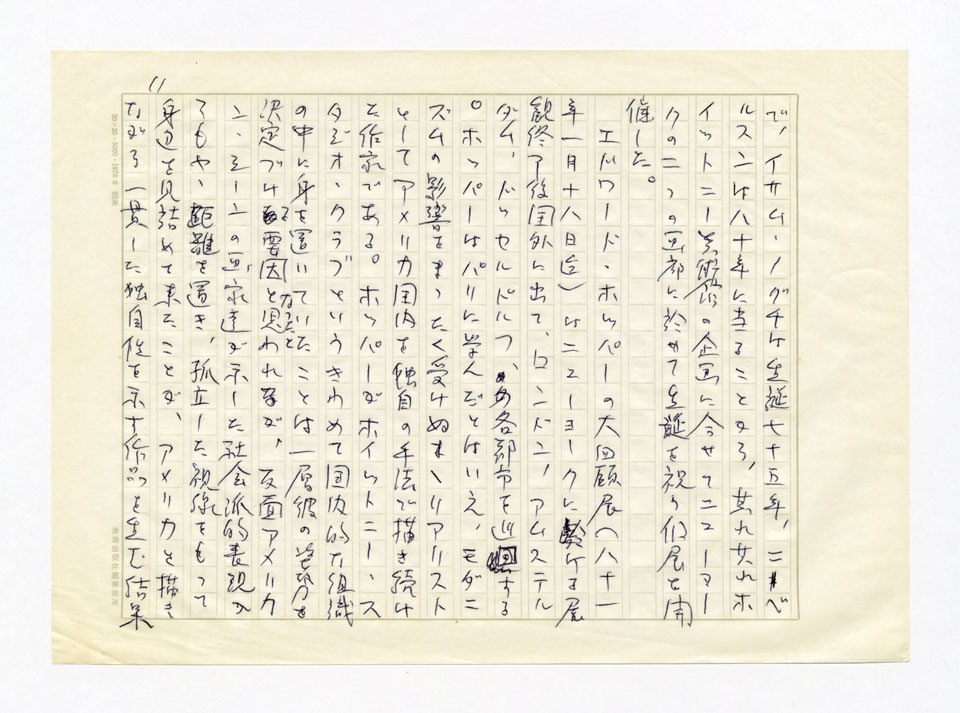 で、イサム・ノグチは生誕七十五年、ニーベ
ルスンは八十年に当ることから、其れ其れホ
イットニー美術館の企画に合せてニューヨー
クの二つの画廊に於せて生誕を祝う個展を開
催した。
エドワード・ホッパーの大回顧展へ八十一
年一月十八日迄)はニューヨークに於ける展
観終了後国外に出て、ロンドン、アムステル
ダム、ドッセルドルフ、の各都市を巡回する
。ホッパーはパリに学んだとはいえ、モダニ
ズムの影響をまったく受けぬまゝリアリスト
としてアメリカ国内を独自の手法で描き続け
た作家である。ホッパーがホイットニー・ス
タジオ・クラブというきわめて国内的な組織
の中に身を置いていたことは一層彼の姿勢を
決定づける要因となったと思われるが、反面アメリカ
ン・シーンの画家達が示した社会派的表現か
らもやゝ距離を置き、孤立した視線をもって
身辺を見詰めて来たことが、アメリカを描き
ながら一貫した独自性を示す作品を生む結果
11
20×20